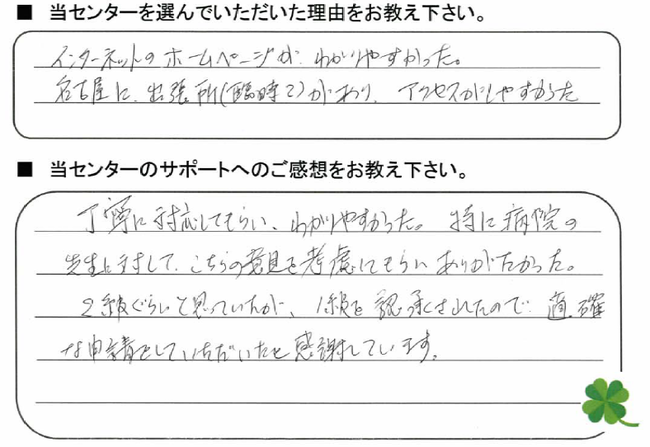 ■ 当センターを選んでいただいた理由をお教え下さい。
インターネットのホームページが、わかりやすかった。
名古屋に、出張所(臨時で)があり、アクセスがしやすかった
■ 当センターのサポートへのご感想をお教え下さい。
丁寧に対応してもらい、わかりやすかった。特に病院の
先生に対して、こちらの意見を考慮してもらいありがたかった。
2級ぐらいと思っていたが、1級を認承されたので、適確
な申請をしていただいたと感謝しています。